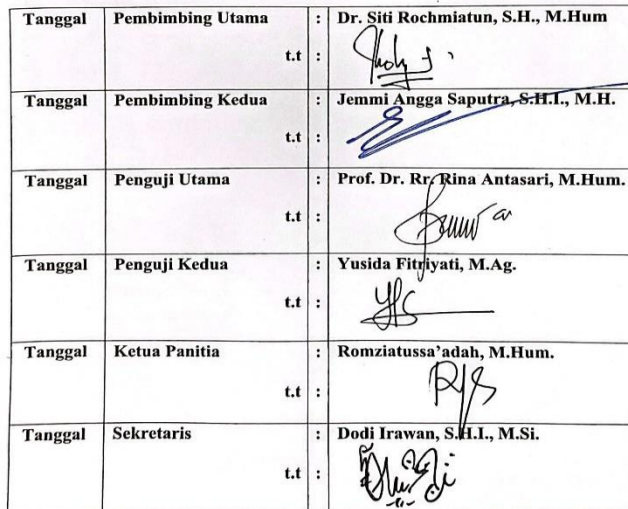 Tanggal Pembimbing Utama : Dr. Siti Rochmiatun, S.H., M.Hum
t.t :
Tanggal Pembimbing Kedua : Jemmi Angga Saputra, S.H.I., M.H.
t.t :
Tanggal Penguji Utama : Prof. Dr. Rr. Rina Antasari, M.Hum.
t.t :
Tanggal Penguji Kedua : Yusida Fitriyati, M.Ag.
t.t :
Tanggal Ketua Panitia : Romziatussa'adah, M.Hum.
t.t :
Tanggal Sekretaris : Dodi Irawan, S.H.I., M.Si.
t.t :